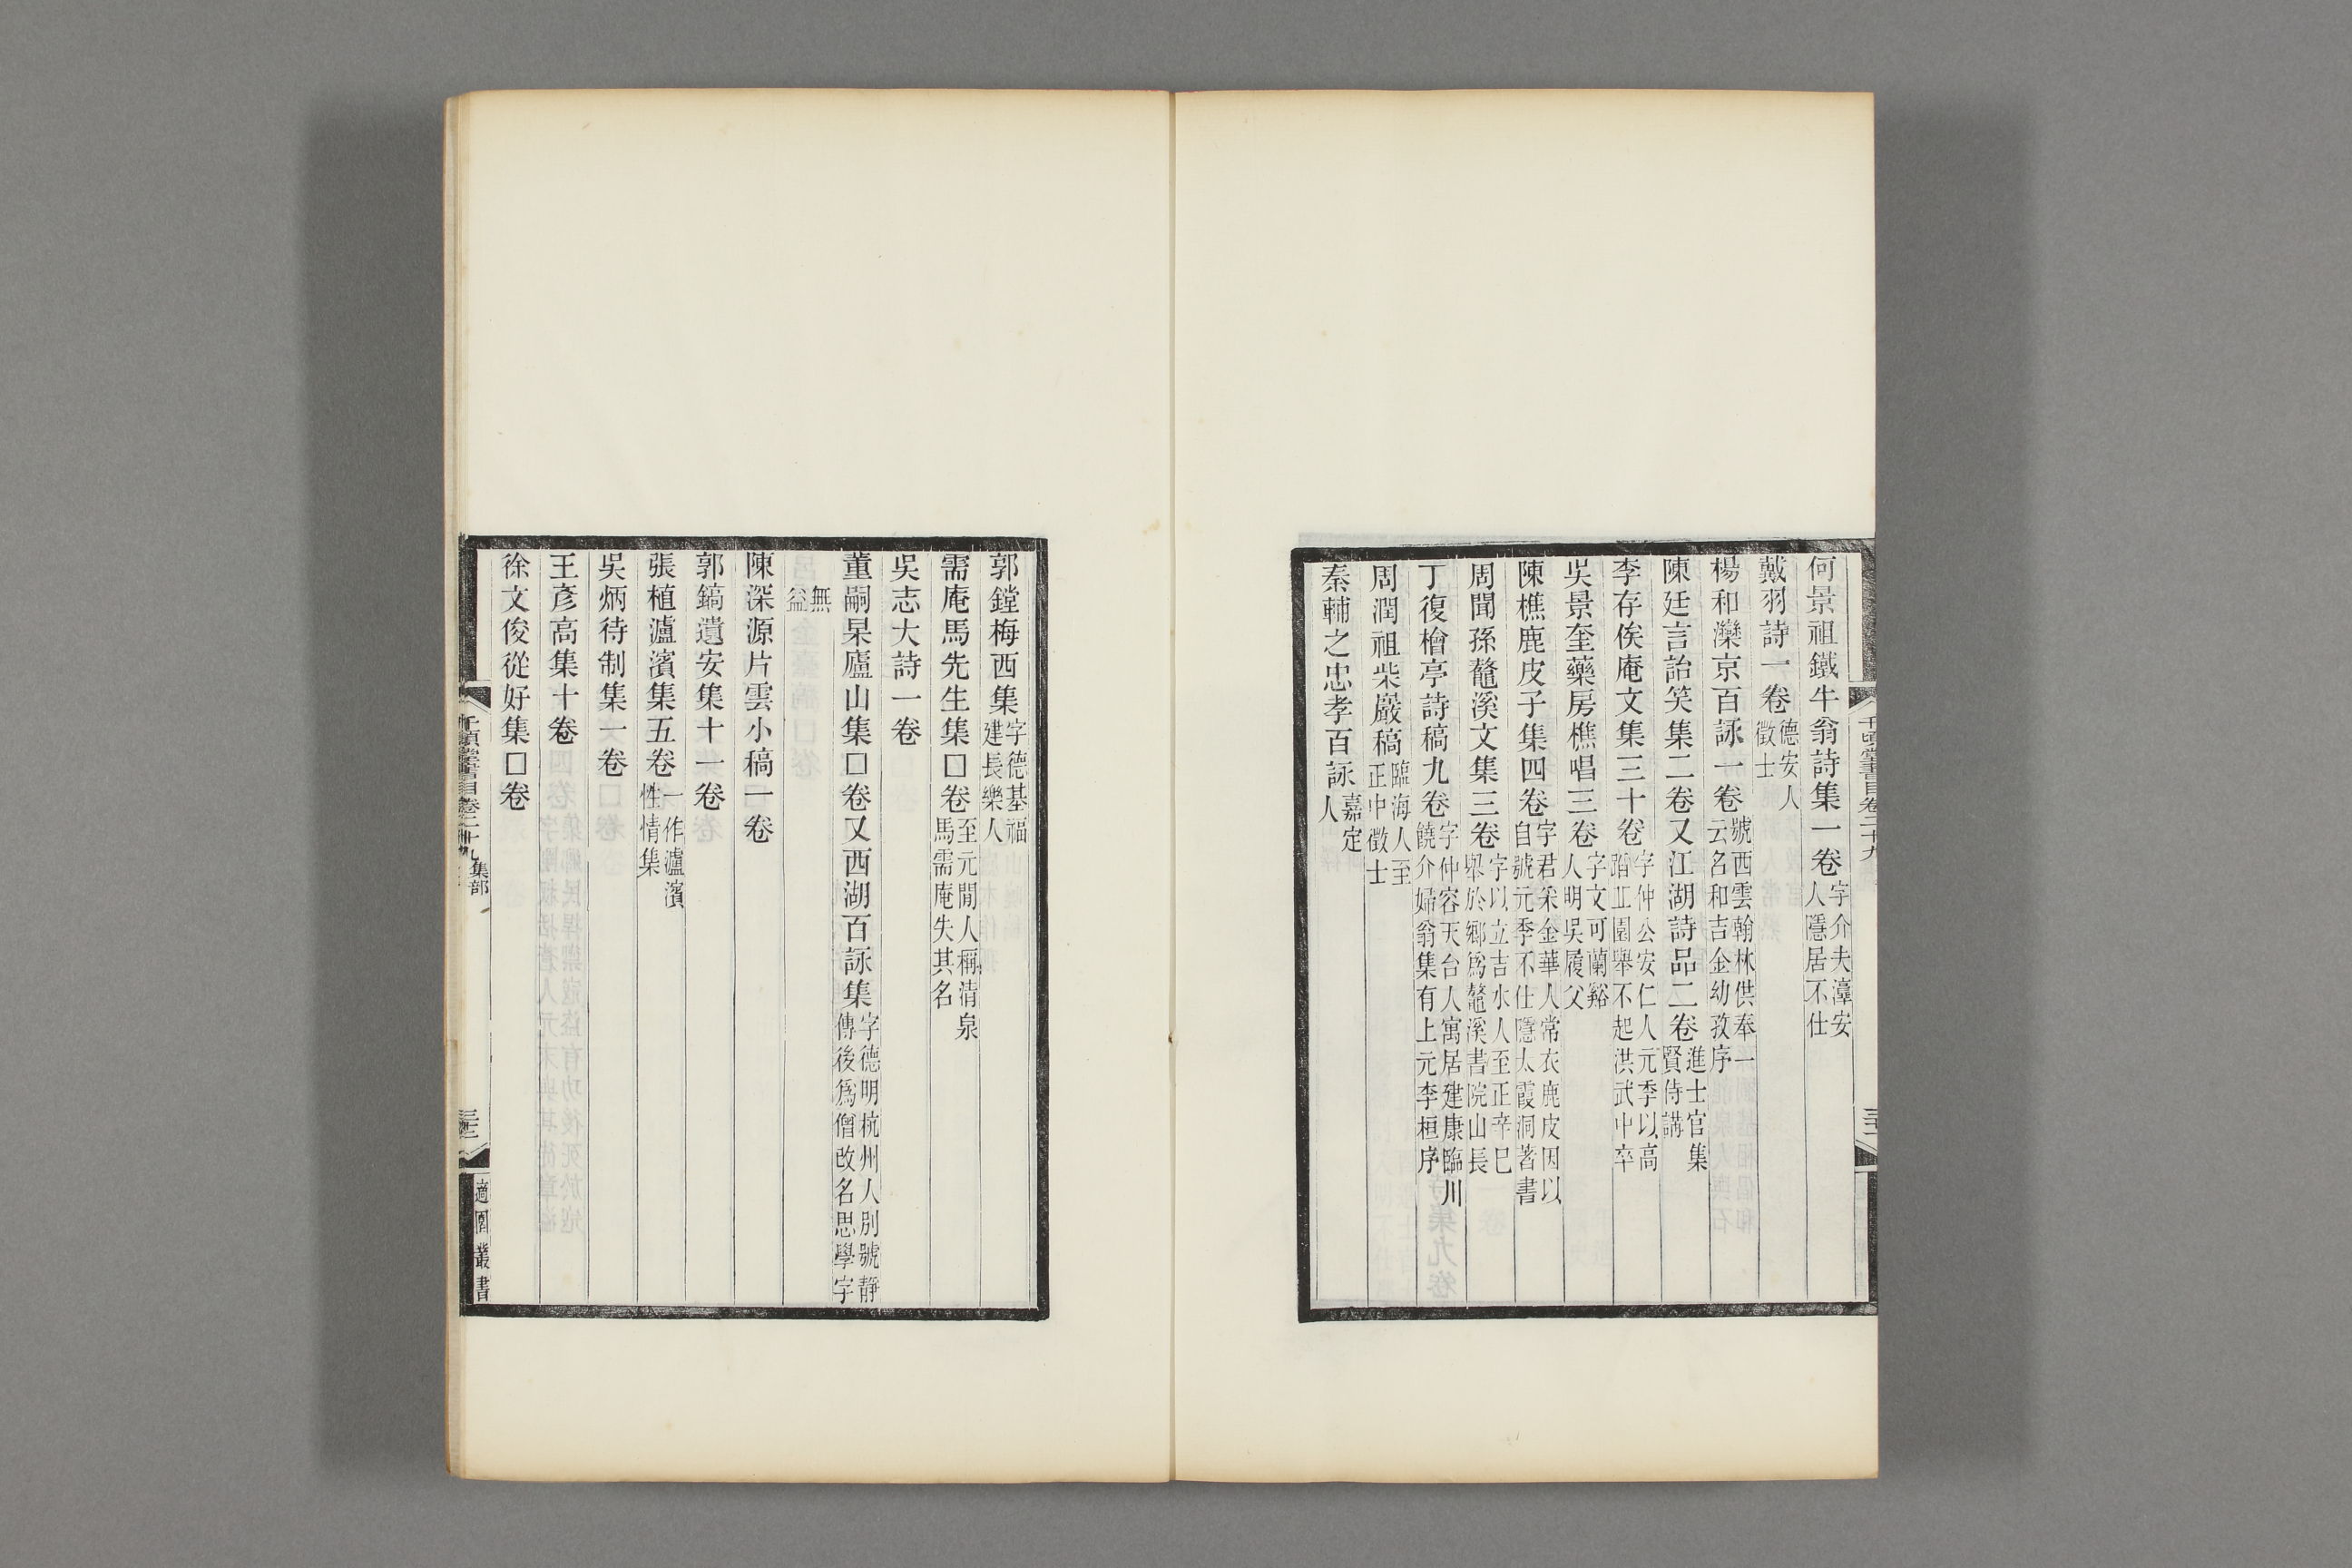 何景祖鐵牛翁詩集一卷字介夫漳安人隱居不仕
戴羽詩一卷德安人徵士
楊和灤京百詠一卷號西雲翰林供奉一云名和吉金幼孜序
陳廷言詒笑集二卷又江湖詩品二卷進士官集賢侍講
李存俟庵文集三十卷字仲公安仁人元季以高蹈丘園舉不起洪武中卒
吳景奎藥房樵唱三卷字文可蘭谿人明吳履父
陳樵鹿皮子集四卷字君采金華人常衣鹿皮因以自號元季不仕隱太霞洞著書
周聞孫鼇溪文集三卷字以立吉水人至正辛巳舉於鄉爲鼇溪書院山長
丁復檜亭詩稿九卷字仲容天台人寓居建康臨川饒介婦翁集有上元李桓序
周潤祖柴巖稿臨海人至正中徵士
秦輔之忠孝百詠嘉定人
千頃堂書目卷二十九
郭鏜梅西集字德基福建長樂人
需庵馬先生集□卷至元閒人稱清泉馬需庵失其名
吳志大詩一卷
董嗣杲廬山集□卷又西湖百詠集字德明杭州人別號靜傳後爲僧改名思學字
無益
陳深源片雲小稿一卷
郭鎬遺安集十一卷
張植瀘濱集五卷一作瀘濱性情集
吳炳待制集一卷
王彥高集十卷
徐文俊從好集□卷
千頃堂書目卷二十九集部
適園叢書